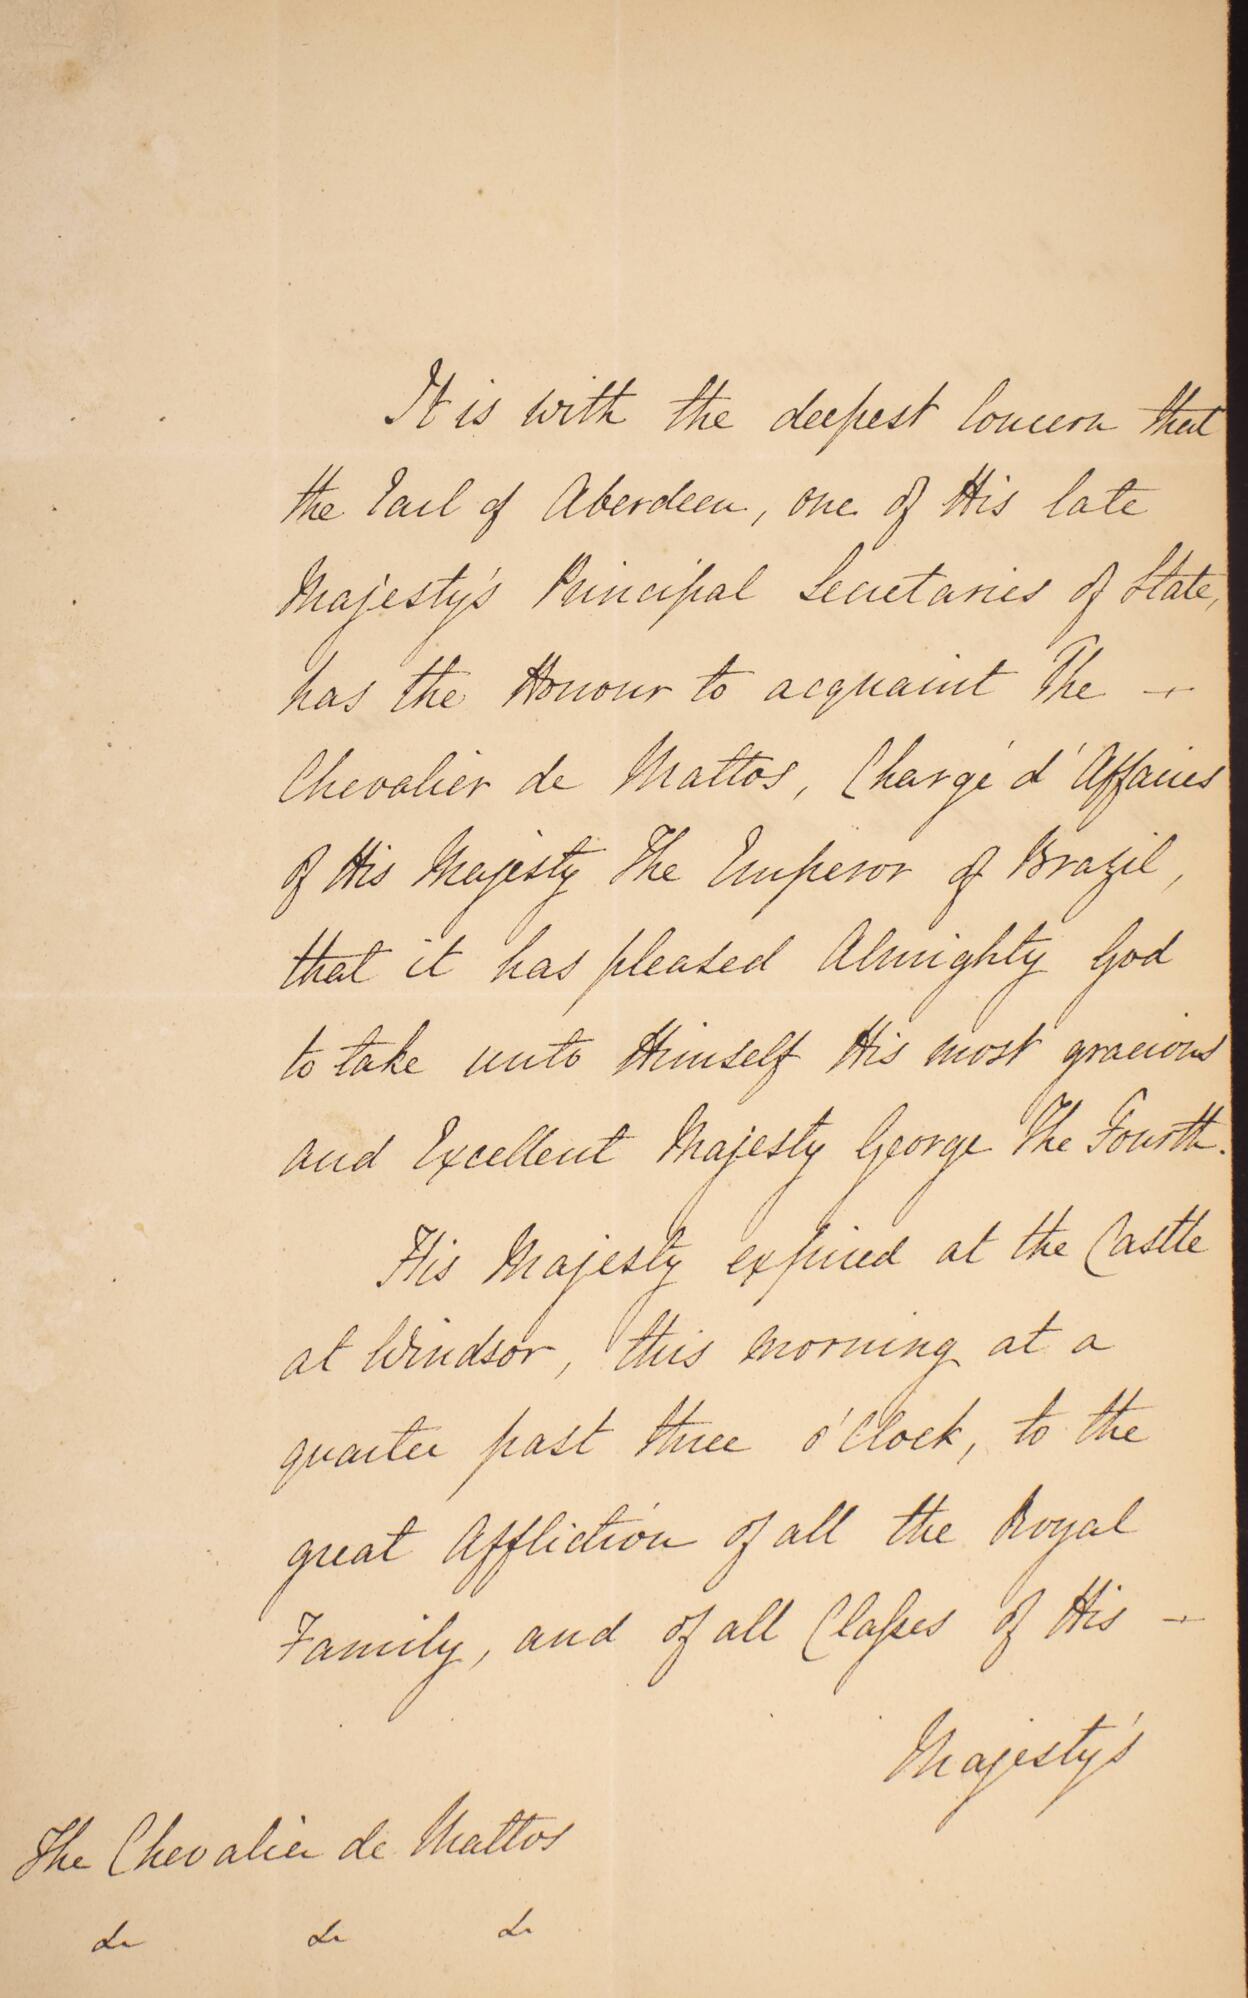 It is with the deepest Concern that
the Earl of Aberdeen, one of His late
Majesty's Principal Secretaries of State,
has the Honour to acquaint The —
Chevalier de Mattos, Chargé d'Affaires
of His Majesty The Emperor of Brazil,
that it has pleased Almighty God
to take unto Himself His most gracious
and Excellent Majesty George The Fourth.
His Majesty expired at the Castle
at Windsor, this morning at a
quarter past three o'Clock, to the
great Affliction of all the Royal
Family, and of all Claſses of His —
Majesty's
The Chevalier de Mattos
&c &c &c